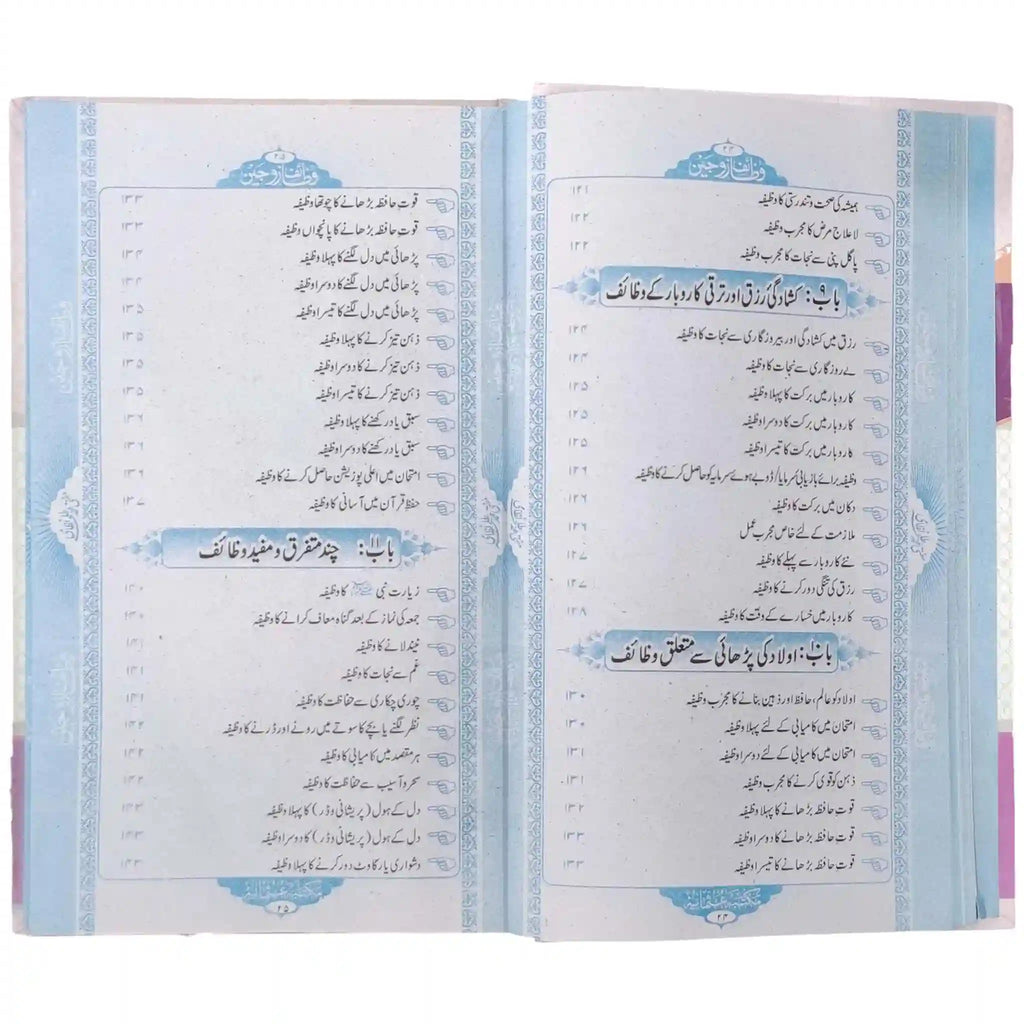 ۲۴
وظائف زوجین
ہمیشہ کی صحت و تندرستی کا وظیفہ ۱۲۱
لا علاج مرض کا مجرب وظیفہ ۱۲۲
پاگل پنی سے نجات کا مجرب وظیفہ ۱۲۲
باب ۹: کشادگیٔ رزق اور ترقی کاروبار کے وظائف
رزق میں کشادگی اور بیروزگاری سے نجات کا وظیفہ ۱۲۴
بے روزگاری سے نجات کا وظیفہ ۱۲۴
کاروبار میں برکت کا پہلا وظیفہ ۱۲۵
کاروبار میں برکت کا دوسرا وظیفہ ۱۲۵
کاروبار میں برکت کا تیسرا وظیفہ ۱۲۵
وظیفہ برائے بازیابی سرمایا/ڈوبے ہوے سرمایہ کو حاصل کرنے کا وظیفہ ۱۲۶
دکان میں برکت کا وظیفہ ۱۲۶
ملازمت کے لئے خاص مجرب عمل ۱۲۶
نئے کاروبار سے پہلے کا وظیفہ ۱۲۷
رزق کی تنگی دور کرنے کا وظیفہ ۱۲۷
کاروبار میں خسارے کے وقت کا وظیفہ ۱۲۸
باب ۱۰: اولاد کی پڑھائی سے متعلق وظائف
اولاد کو عالم، حافظ اور ذہین بنانے کا مجرب وظیفہ ۱۳۰
امتحان میں کامیابی کے لئے پہلا وظیفہ ۱۳۰
امتحان میں کامیابی کے لئے دوسرا وظیفہ ۱۳۱
ذہن کو قوی کرنے کا مجرب وظیفہ ۱۳۱
قوتِ حافظہ بڑھانے کا پہلا وظیفہ ۱۳۲
قوتِ حافظہ بڑھانے کا دوسرا وظیفہ ۱۳۳
قوتِ حافظہ بڑھانے کا تیسرا وظیفہ ۱۳۳
مکتبہ عثمانیہ
۲۴
۲۵
وظائف زوجین
قوتِ حافظہ بڑھانے کا چوتھا وظیفہ ۱۳۳
قوتِ حافظہ بڑھانے کا پانچواں وظیفہ ۱۳۳
پڑھائی میں دل لگنے کا پہلا وظیفہ ۱۳۴
پڑھائی میں دل لگنے کا دوسرا وظیفہ ۱۳۴
پڑھائی میں دل لگنے کا تیسرا وظیفہ ۱۳۵
ذہن تیز کرنے کا پہلا وظیفہ ۱۳۵
ذہن تیز کرنے کا دوسرا وظیفہ ۱۳۵
ذہن تیز کرنے کا تیسرا وظیفہ ۱۳۵
سبق یاد رکھنے کا پہلا وظیفہ ۱۳۶
سبق یاد رکھنے کا دوسرا وظیفہ ۱۳۶
امتحان میں اعلیٰ پوزیشن حاصل کرنے کا وظیفہ ۱۳۶
حفظِ قرآن میں آسانی کا وظیفہ ۱۳۷
باب ۱۱: چند متفرق و مفید وظائف
زیارت نبی ﷺ کا وظیفہ ۱۴۰
جمعہ کی نماز کے بعد گناہ معاف کرانے کا وظیفہ ۱۴۰
نیند لانے کا وظیفہ ۱۴۱
غم سے نجات کا وظیفہ ۱۴۱
چوری چکاری سے حفاظت کا وظیفہ ۱۴۱
نظر لگنے یا بچے کا سوتے میں رونے اور ڈرنے کا وظیفہ ۱۴۲
ہر مقصد میں کامیابی کا وظیفہ ۱۴۲
سحر و آسیب سے حفاظت کا وظیفہ ۱۴۲
دل کے ہول (پریشانی و ڈر) کا پہلا وظیفہ ۱۴۳
دل کے ہول (پریشانی و ڈر) کا دوسرا وظیفہ ۱۴۳
دشواری یا رکاوٹ دور کرنے کا پہلا وظیفہ ۱۴۳
مکتبہ عثمانیہ
۲۵